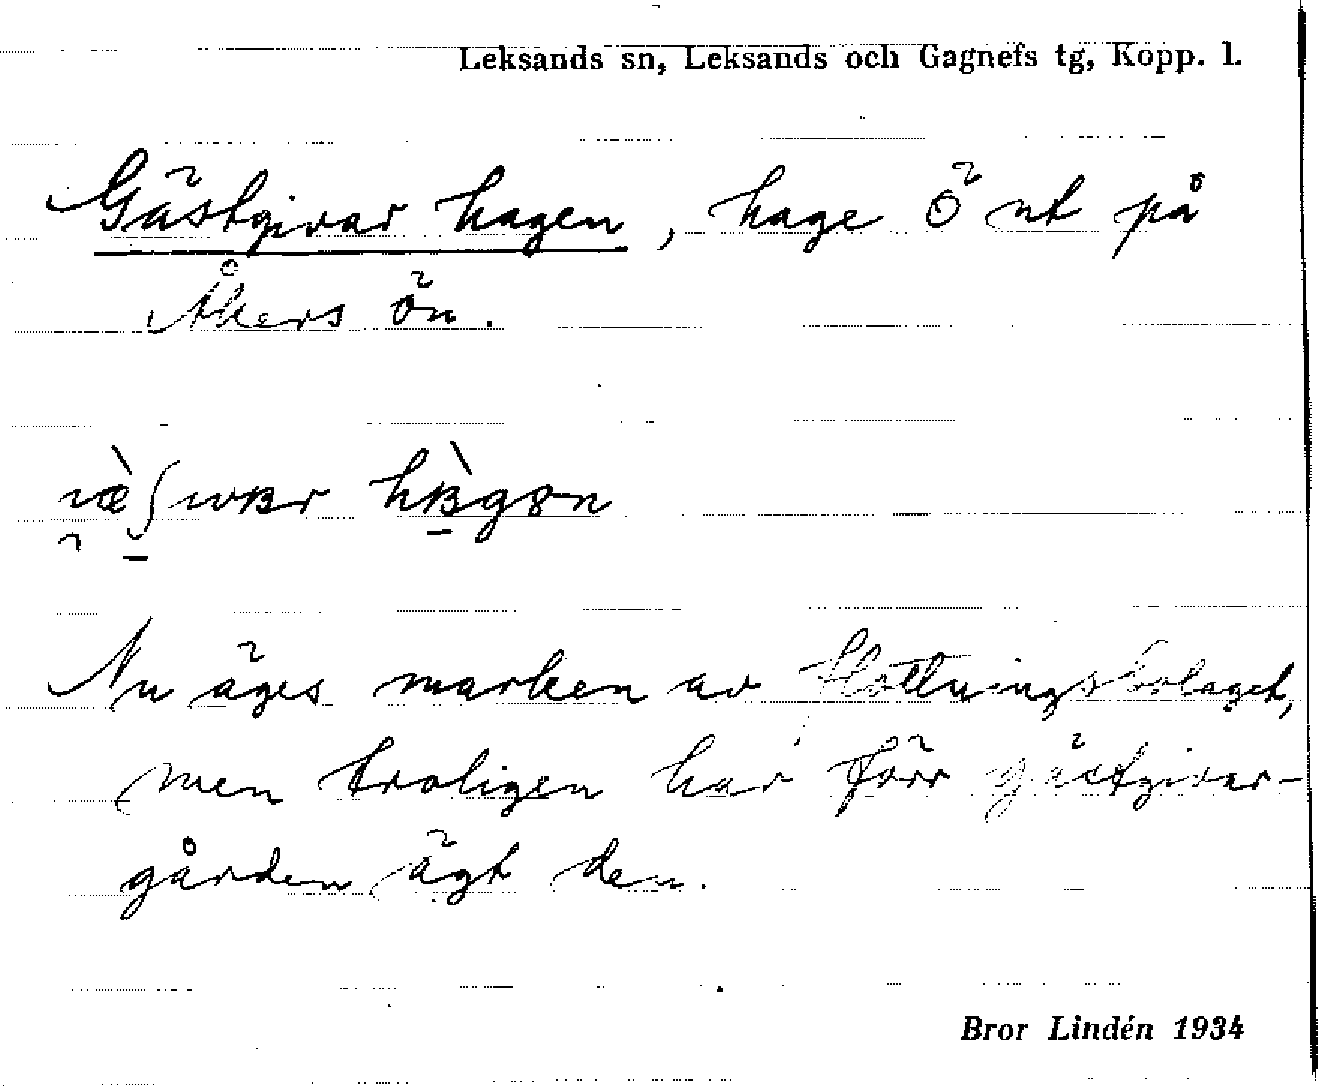 Leksands sn, Leksands och Gagnefs tg, Kopp. l.
Gästgivar hagen, hage Ö nt på
Åkers ön.
Nu äges marken av flottningsbolaget,
men troligen har förr gästgivar-
gården ägt den.
Bror Lindén 1934